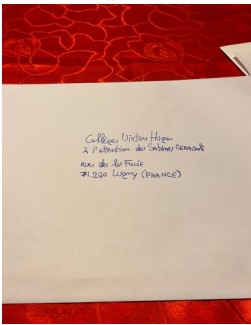 Collège Victor Hugo
à l'attention de Sabine
rue de la Folie
71.260 Lugny (FRANCE)